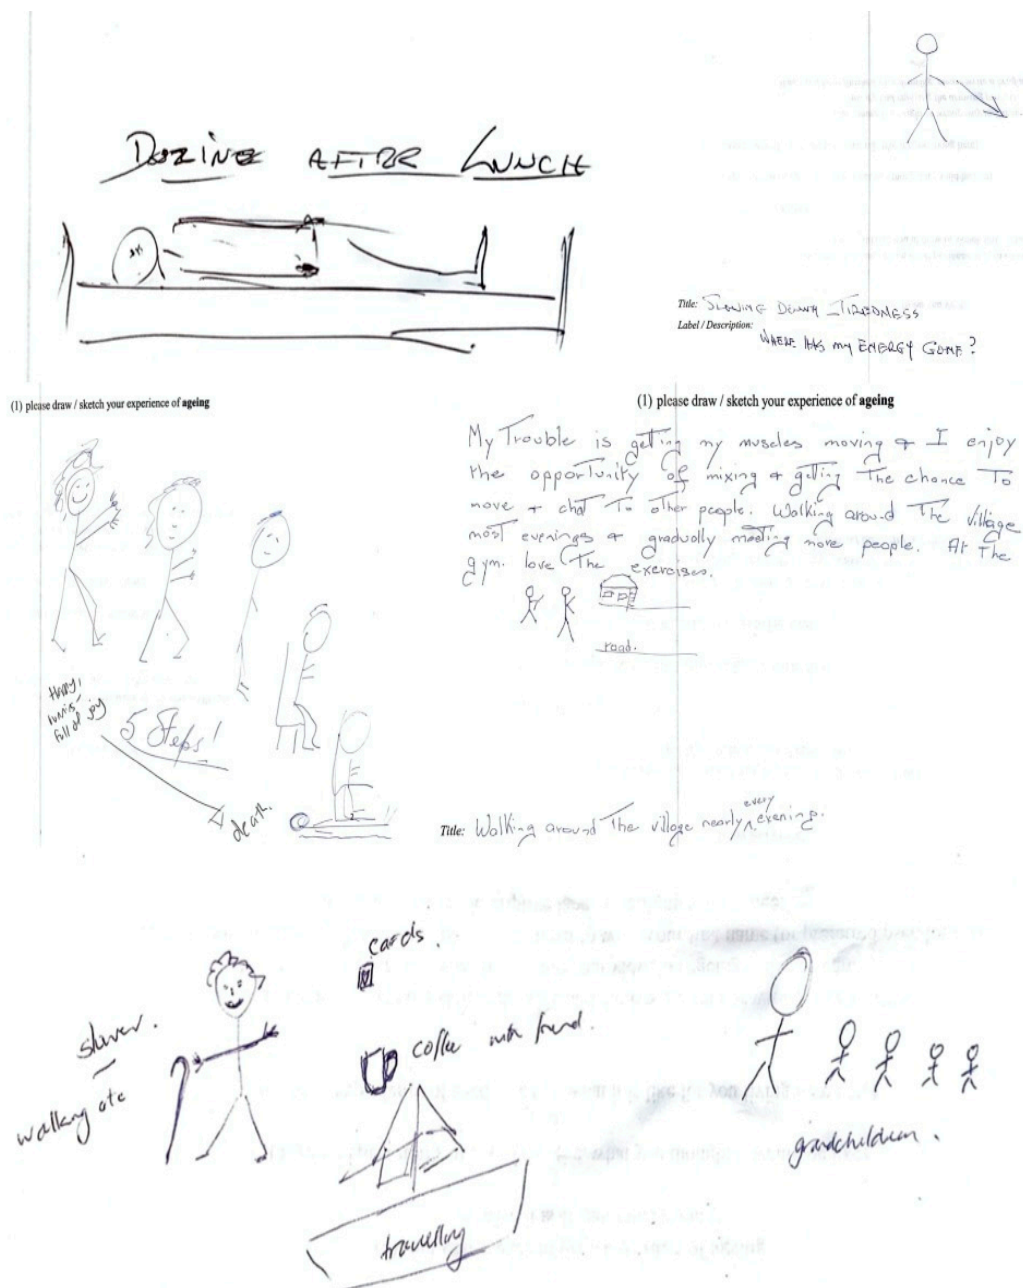 DOZING AFTER LUNCH
Title: SLOWING DOWN _ TIREDNESS
Label / Description:
WHERE HAS my ENERGY GONE?
(1) please draw / sketch your experience of ageing
Happy,
full of joy
5 Steps!
death.
(1) please draw / sketch your experience of ageing
My Trouble is getting my muscles moving & I enjoy
the opportunity of mixing & getting The chance To
move & chat To other people. Walking around The village
most evenings & gradually meeting more people. At The
gym. love The exercises.
road.
Title: Walking around The village nearly every evening.
cards.
slower.
walking etc
coffee with friend.
travelling
grandchildren.